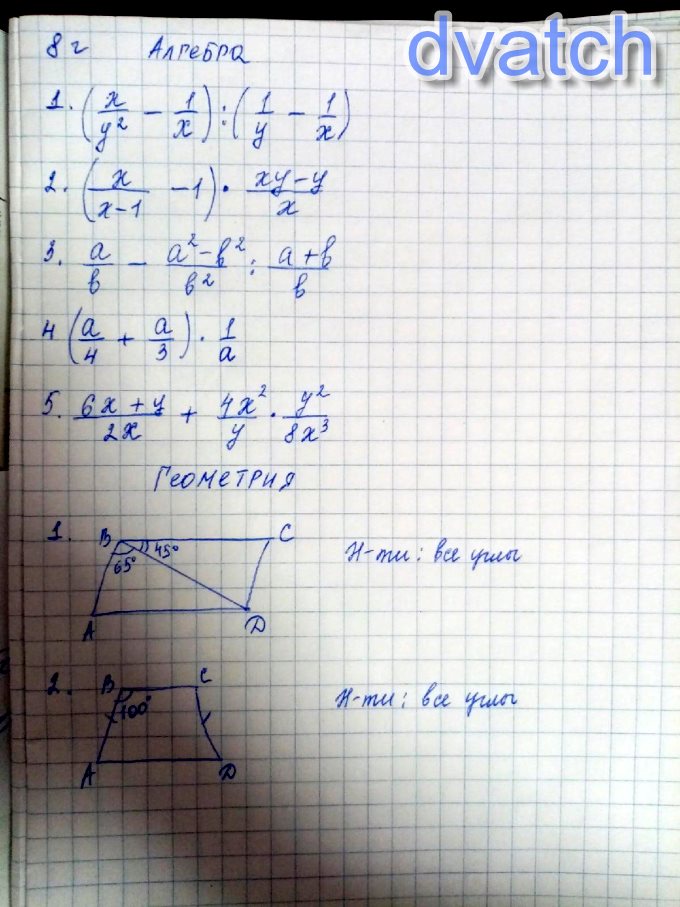 dvatch
8 г Алгебра
1. (x/y² − 1/x) : (1/y − 1/x)
2. (x/(x-1) − 1) · (xy-y)/x
3. a/b − (a²-b²)/b² : (a+b)/b
4 (a/4 + a/3) · 1/a
5. (6x+y)/2x + 4x²/y · y²/8x³
Геометрия
1. B C
65° 45°
A D
Н-ти: все углы
2. B C
100°
A D
Н-ти: все углы